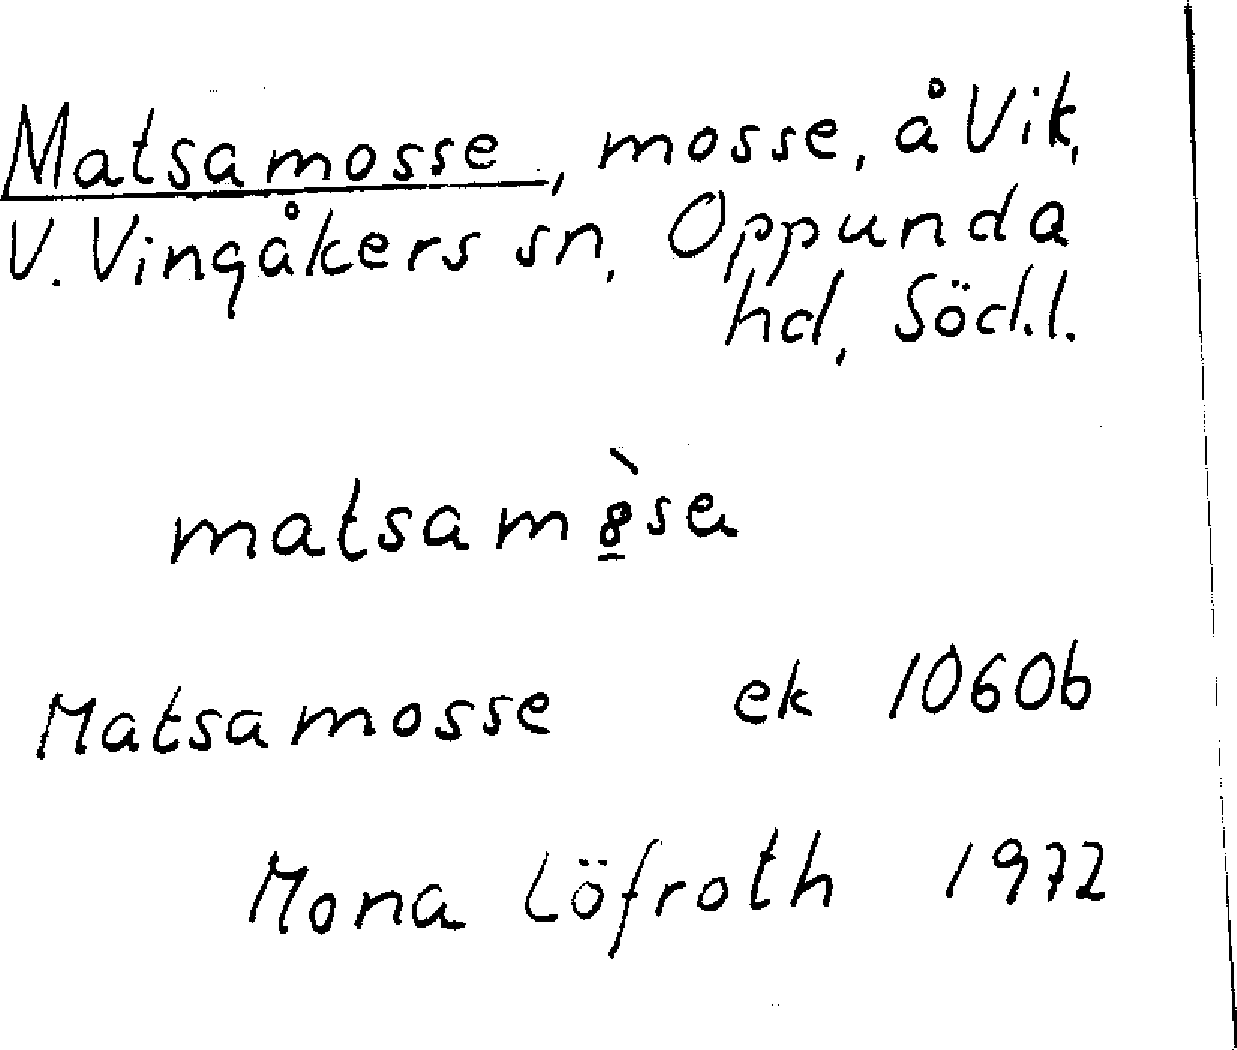 Matsamosse, mosse, å Vik,
V. Vingåkers sn, Oppunda
hd, Södl.
Matsamosse ek 1060b
Mona Löfroth 1972